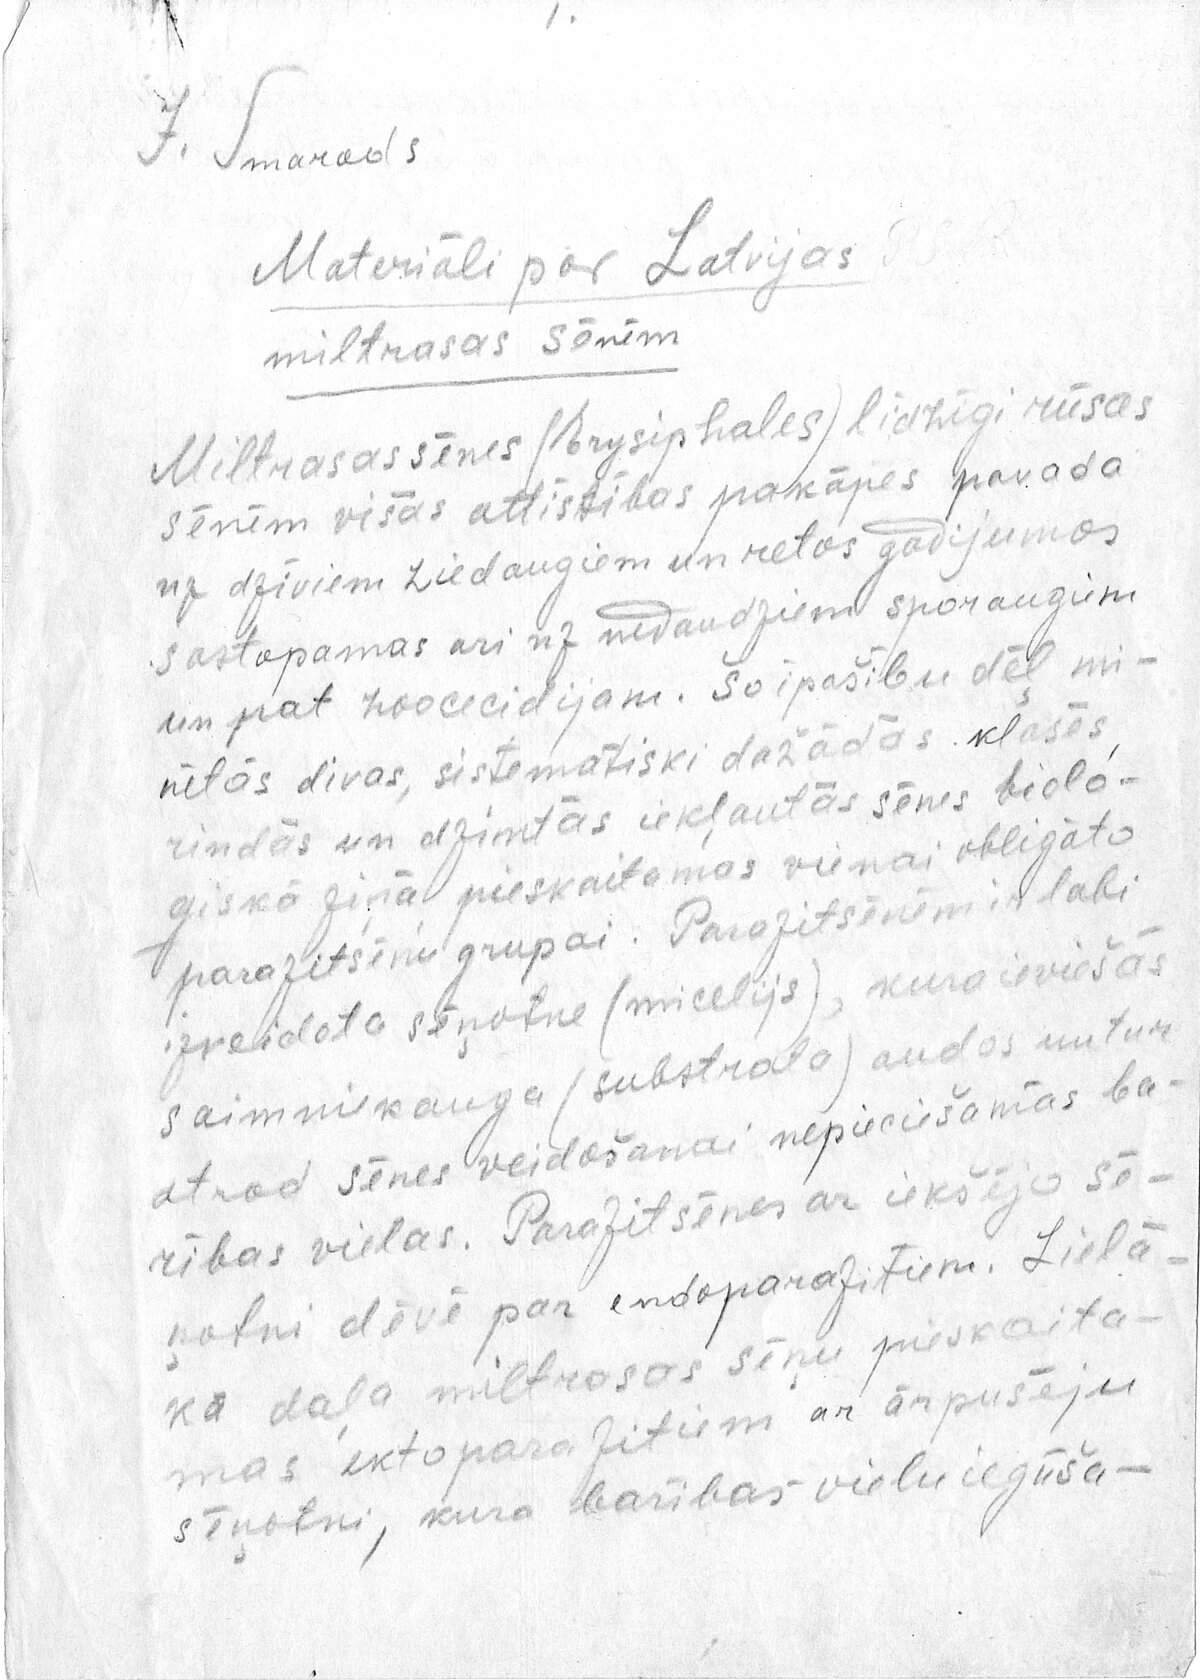 1.
J. Smarods
Materiāli par Latvijas
miltrasas sēnēm
Miltrasas sēnes (Erysiphales) līdzīgi rūsas
sēnēm visās attīstības pakāpēs pavada
uz dzīviem ziedaugiem un retos gadījumos
sastopamas arī uz nedaudziem sporaugiem
un pat zoocecidijam. Šo īpašību dēļ mi-
nētās divas, sistemātiski dažādās klasēs,
rindās un dzimtās iekļautās sēnes biolo-
ģiskā ziņā pieskaitāmas vienai obligāto
parazitsēņu grupai. Parazitsēnēm ir labi
izveidota sēņotne (micelijs), kura ieviešas
saimniekauga (substrata) audos un tur
atrod sēnes veidošanai nepieciešamās ba-
rības vielas. Parazitsēnes ar iekšējo sē-
ņotni dēvē par endoparazitiem. Lielā-
kā daļa miltrasas sēņu pieskaitā-
mas ektoparazitiem ar ārpusēju
sēņotni, kura barības vielu iegūša-